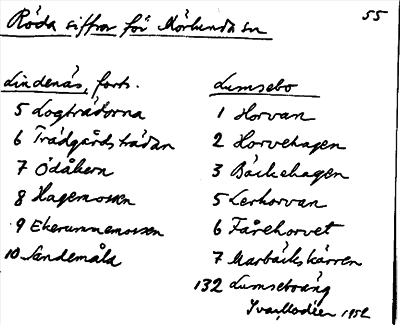 55
Röda siffror för Mörlunda sn
Lindenäs, forts.
5 Logträdorna
6 Trädgårdsträdan
7 Ödåkern
8 Hagemossen
9 Ekerummemossen
10 Sandemåla
Lumsebo
1 Horvan
2 Horvehagen
3 Bäckehagen
5 Lerhorvan
6 Fårehorvet
7 Marbäckskärren
132 Lumseboäng
Ivar Modéer 1952